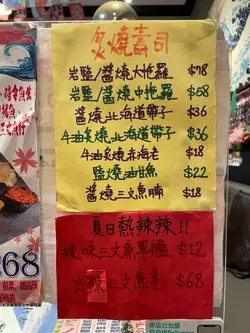 炙燒壽司
岩鹽/醬燒大拖羅 $78
岩鹽/醬燒中拖羅 $68
醬燒北海道帶子 $36
牛油醬燒北海道帶子 $36
牛油炙燒赤海老 $18
鹽燒油甘魚 $22
醬燒三文魚腩 $18
夏日熱辣辣!!
辣味三文魚軍艦 $12
火辣三文魚卷 $68
68
本店已加盟